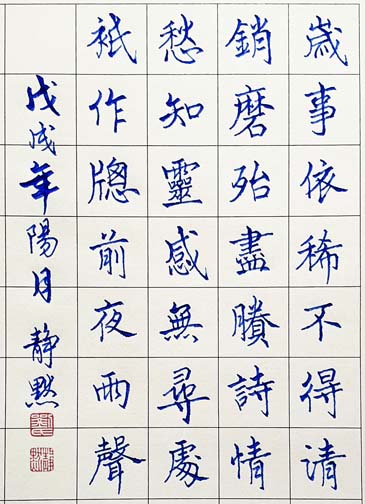 歲事依稀不得清
銷磨殆盡賸詩情
愁知靈感無尋處
衹作牕前夜雨聲
戊戌年陽月 静黙